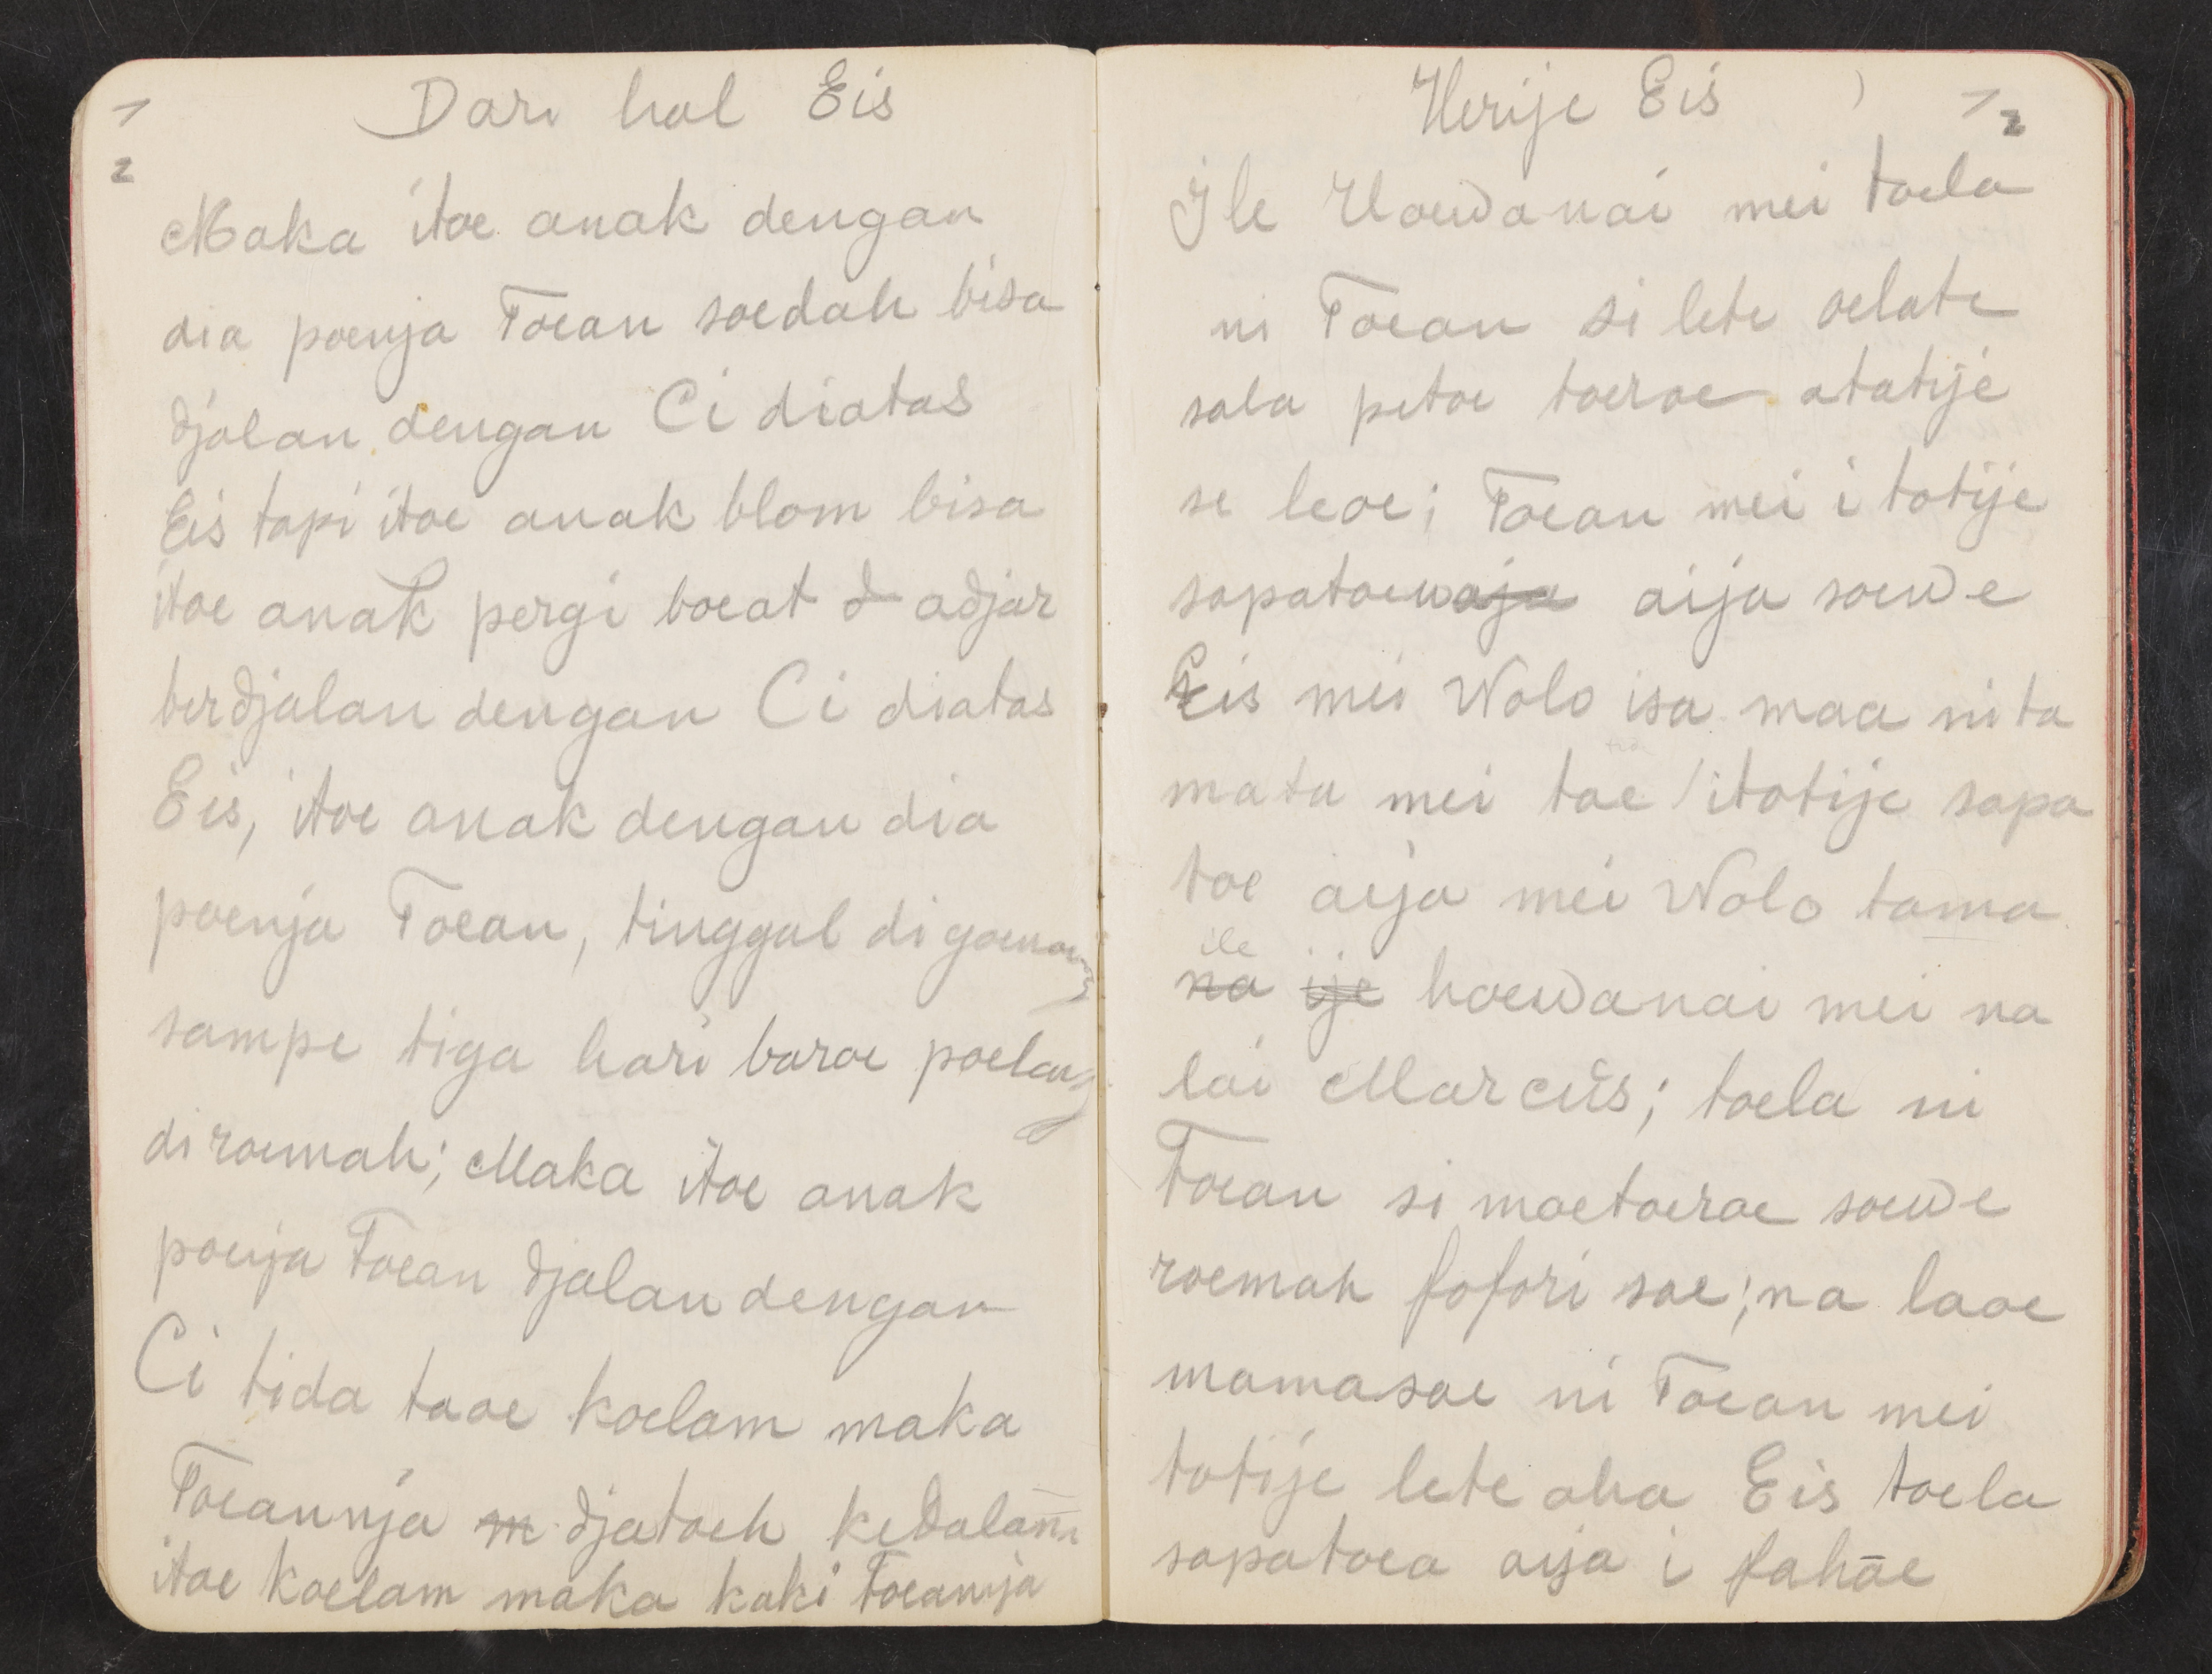 1
2
Dari hal Eis
Maka itoe anak dengan
dia poenja Toean soedah bisa
djalan dengan Ci diatas
Eis tapi itoe anak blom bisa
itoe anak pergi boeat d adjar
berdjalan dengan Ci diatas
Eis, itoe anak dengan dia
poenja Toean, tinggal di goenoeng
sampe tiga hari baroe poelang
di roemah; Maka itoe anak
poenja Toean djalan dengan
Ci tida taoe koelam maka
Toeannja m djatoeh kedalam
itoe koelam maka kaki Toeannja
Herije Eis
1 2
Ile Hoewanai mei toela
ni Toean si lete oelate
sala petoe toeroe atatije
se leoe; Toean mei i totije
sapatoewaja aija soewe
Eis mei Wolo isa maa nita
mata mei tae / itotije sapa
toe aija mei Wolo tama
ile
na ije hoewanai mei na
lai Marcus; toela ni
Toean si moetoeroe soewe
roemah fofori soe; na laoe
mamasoe ni Toean mei
totije lete aha Eis toela
sapatoea aija i fahae